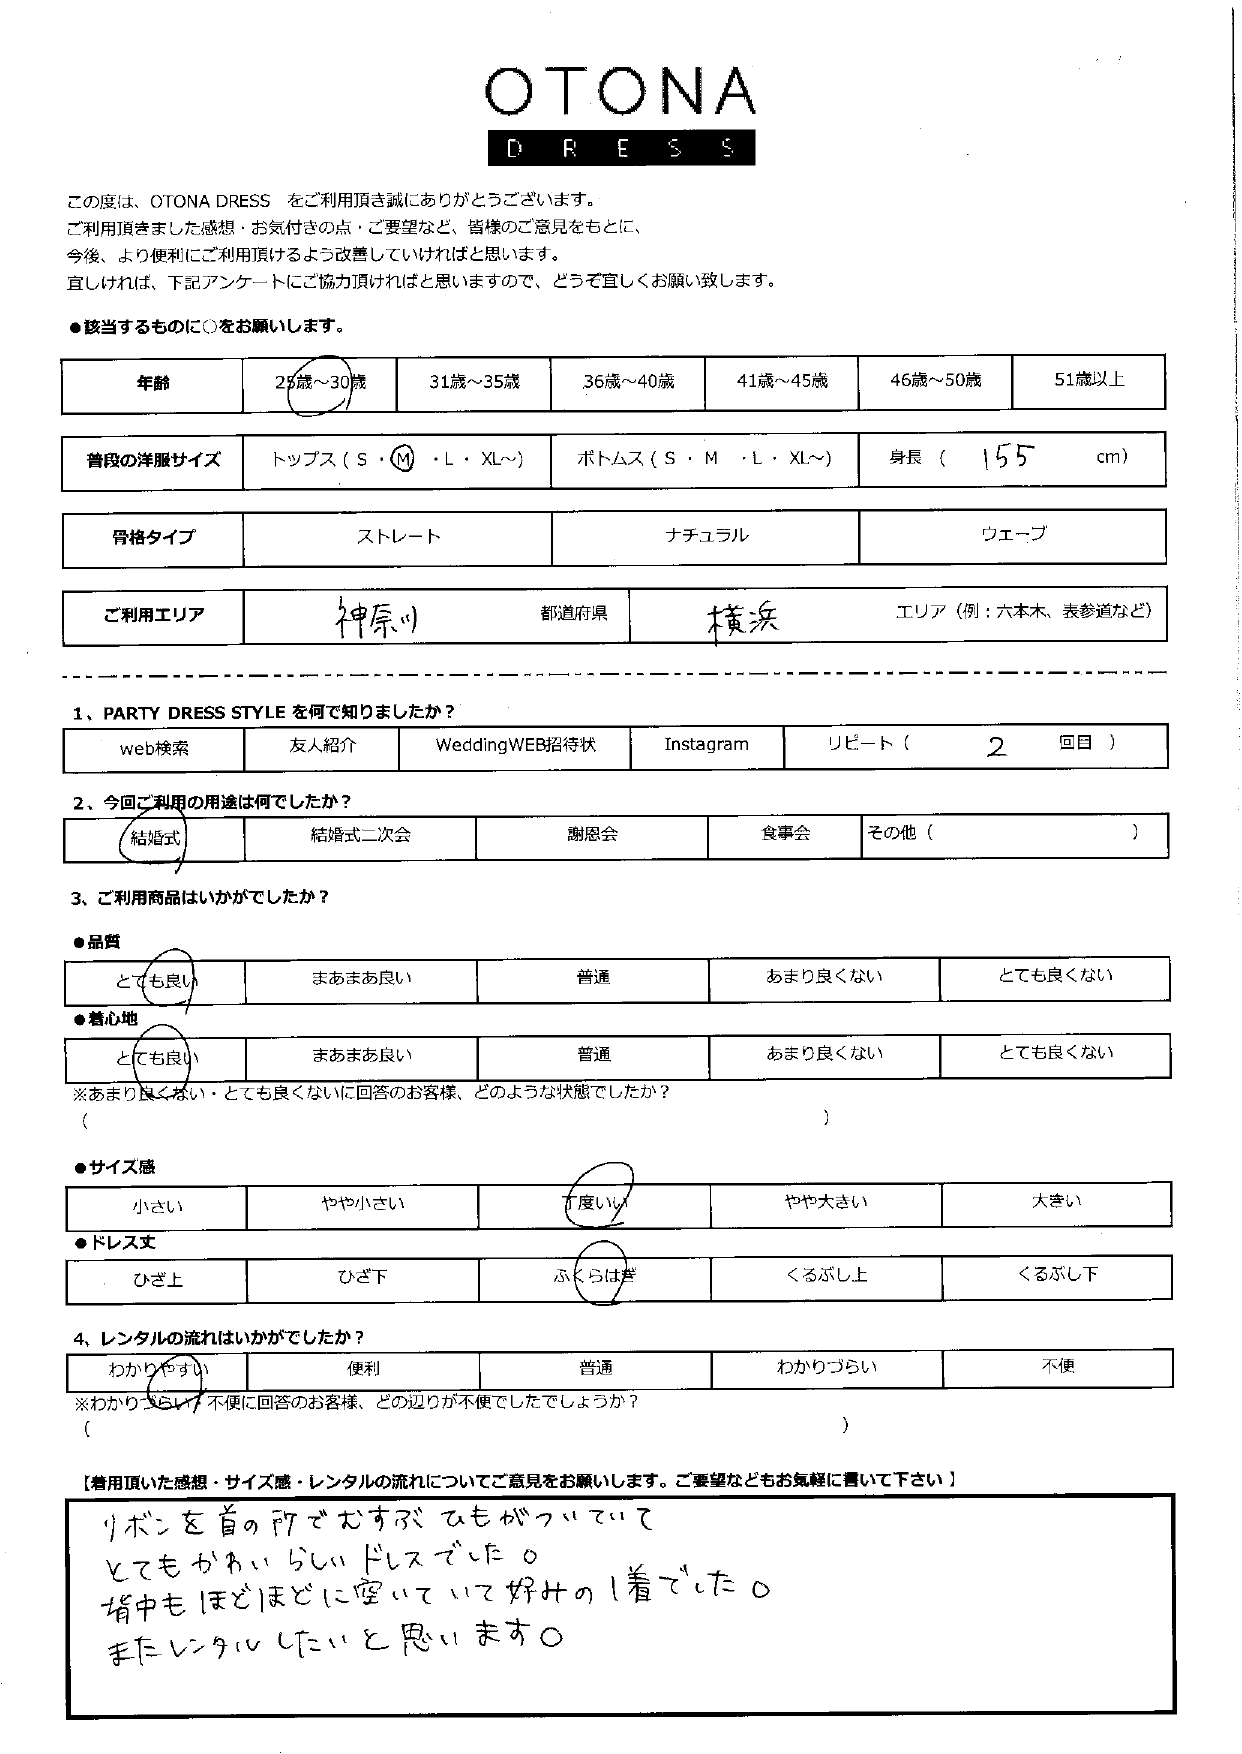 OTONA
DRESS
この度は、OTONA DRESS をご利用頂き誠にありがとうございます。
ご利用頂きました感想・お気付きの点・ご要望など、皆様のご意見をもとに、
今後、より便利にご利用頂けるよう改善していければと思います。
宜しければ、下記アンケートにご協力頂ければと思いますので、どうぞ宜しくお願い致します。
●該当するものに○をお願いします。
年齢 25歳～30歳 31歳～35歳 36歳～40歳 41歳～45歳 46歳～50歳 51歳以上
普段の洋服サイズ トップス ( S ・ M ・L ・ XL～) ボトムス ( S ・ M ・L ・ XL～) 身長 ( 155 cm)
骨格タイプ ストレート ナチュラル ウェーブ
ご利用エリア 神奈川 都道府県 横浜 エリア（例：六本木、表参道など）
1、PARTY DRESS STYLE を何で知りましたか？
web検索 友人紹介 WeddingWEB招待状 Instagram リピート ( 2 回目 )
2、今回ご利用の用途は何でしたか？
結婚式 結婚式二次会 謝恩会 食事会 その他 ( )
3、ご利用商品はいかがでしたか？
●品質
とても良い まあまあ良い 普通 あまり良くない とても良くない
●着心地
とても良い まあまあ良い 普通 あまり良くない とても良くない
※あまり良くない・とても良くないに回答のお客様、どのような状態でしたか？
( )
●サイズ感
小さい やや小さい 丁度いい やや大きい 大きい
●ドレス丈
ひざ上 ひざ下 ふくらはぎ くるぶし上 くるぶし下
4、レンタルの流れはいかがでしたか？
わかりやすい 便利 普通 わかりづらい 不便
※わかりづらい/不便に回答のお客様、どの辺りが不便でしたでしょうか？
( )
【着用頂いた感想・サイズ感・レンタルの流れについてご意見をお願いします。ご要望などもお気軽に書いて下さい】
リボンを首の所でむすぶひもがついていて
とてもかわいらしいドレスでした。
背中もほどほどに空いていて好みの1着でした。
またレンタルしたいと思います。